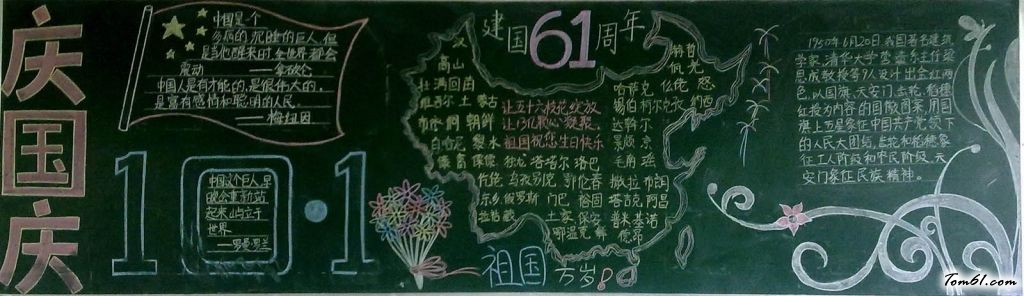 庆
国
庆
中国是个
多病的,沉睡的巨人,但
是当他醒来时,全世界都会
震动 ——拿破仑
中国人是有才能的,是很伟大的,
是富有感情和聪明的人民
——梅纽因
10·1
中国这个巨人,早
晚会重新站
起来,屹立于
世界
——罗曼罗兰
建国61周年
汉
高山
壮 满 回 苗
维吾尔 土 蒙古
朝鲜
黎 水
让五十六枝花绽放
让13亿颗心凝聚,
祖国祝您生日快乐
独龙 塔塔尔 洛巴
仡佬 乌孜别克 鄂伦春
俄罗斯 门巴 裕固
土家 保安
鄂温克
赫哲
哈萨克 仫佬 怒
锡伯 柯尔克孜 纳西
达斡尔
京
毛南
撒拉 布朗
塔吉克 阿昌
普米 基诺
德昂
祖国万岁!
1950年6月20日,我国著名建筑
学家,清华大学营建系主任梁
思成教授等9人设计出金红两
色,以国旗、天安门、齿轮、稻穗
红授为内容的国徽图案,用国
旗上五星象征中国共产党领下
的人民大团结,齿轮和稻穗象
征工人阶级和农民阶级,天
安门象征民族精神。
Tom61.com